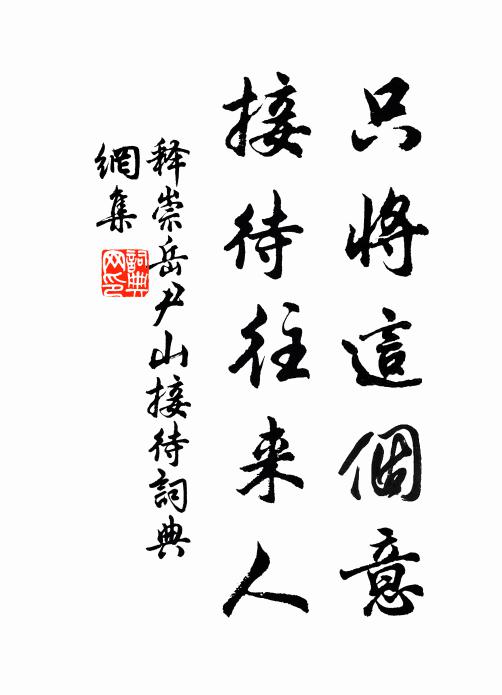 只將這個意
接待往来人
释崇岳尹山接待詞典
網集
詞典网印